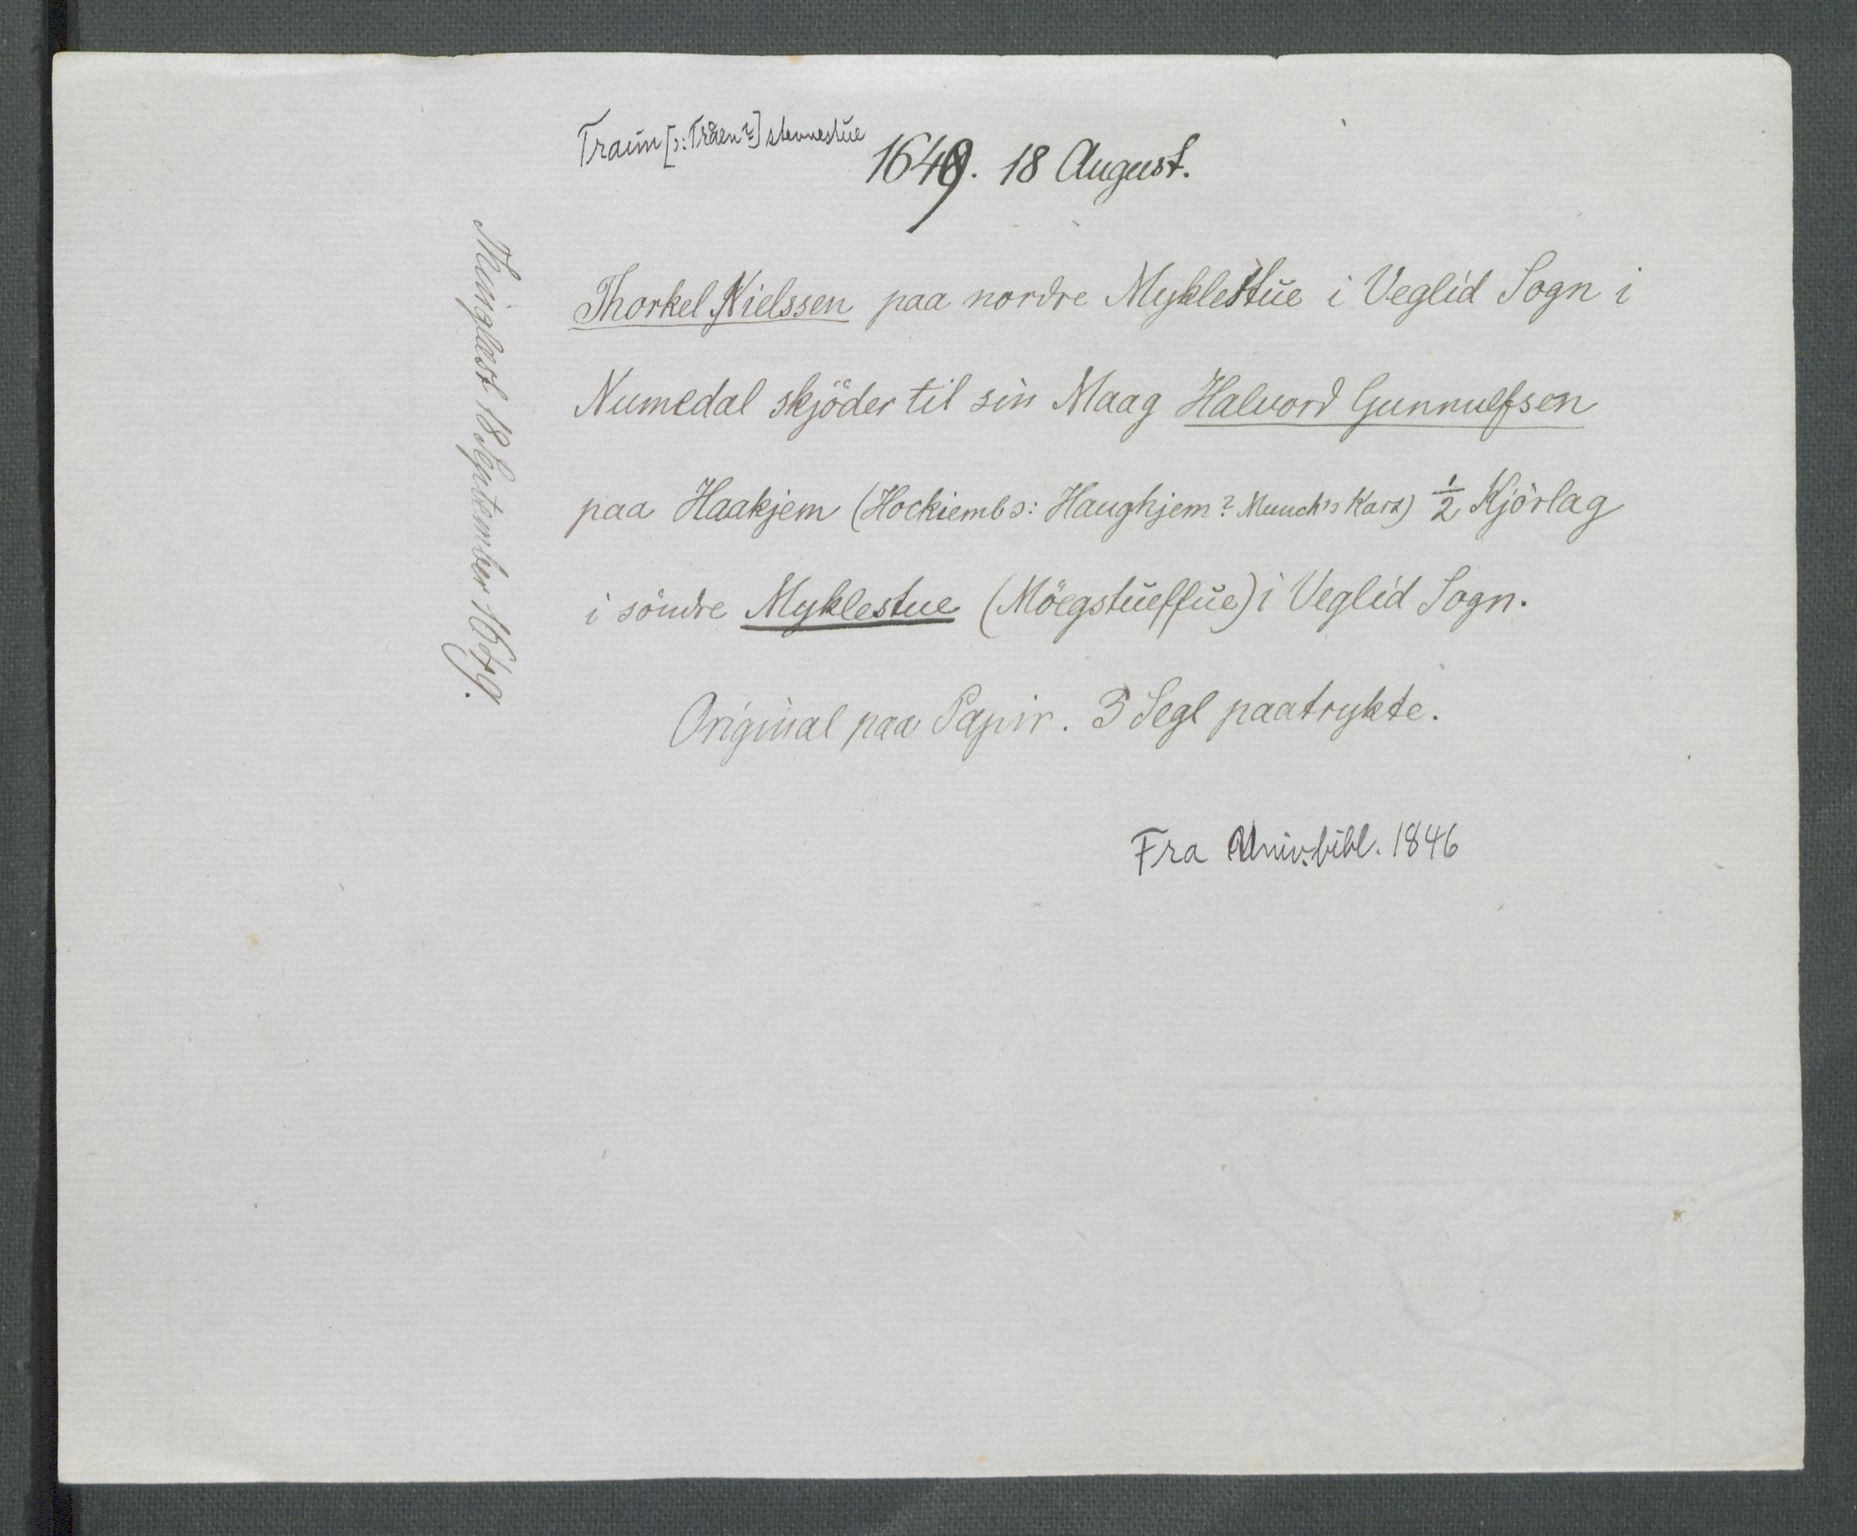 Traim [ɔ: Tråen?] stevnestue
1649. 18 August.
Thorkel Nielssen paa nordre Myklestue i Veglid Sogn i
Numedal skjöder til sin Maag Halvord Gunnulfsen
paa Haakjem (Hockiemb ɔ: Haughjem? Munch's Kart) ½ Kjörlag
i söndre Myklestue (Möegstueffue) i Veglid Sogn.
Original paa Papir. 3 Segl paatrykte.
Fra Univ.bibl. 1846
Thinglæst 18 September 1649.